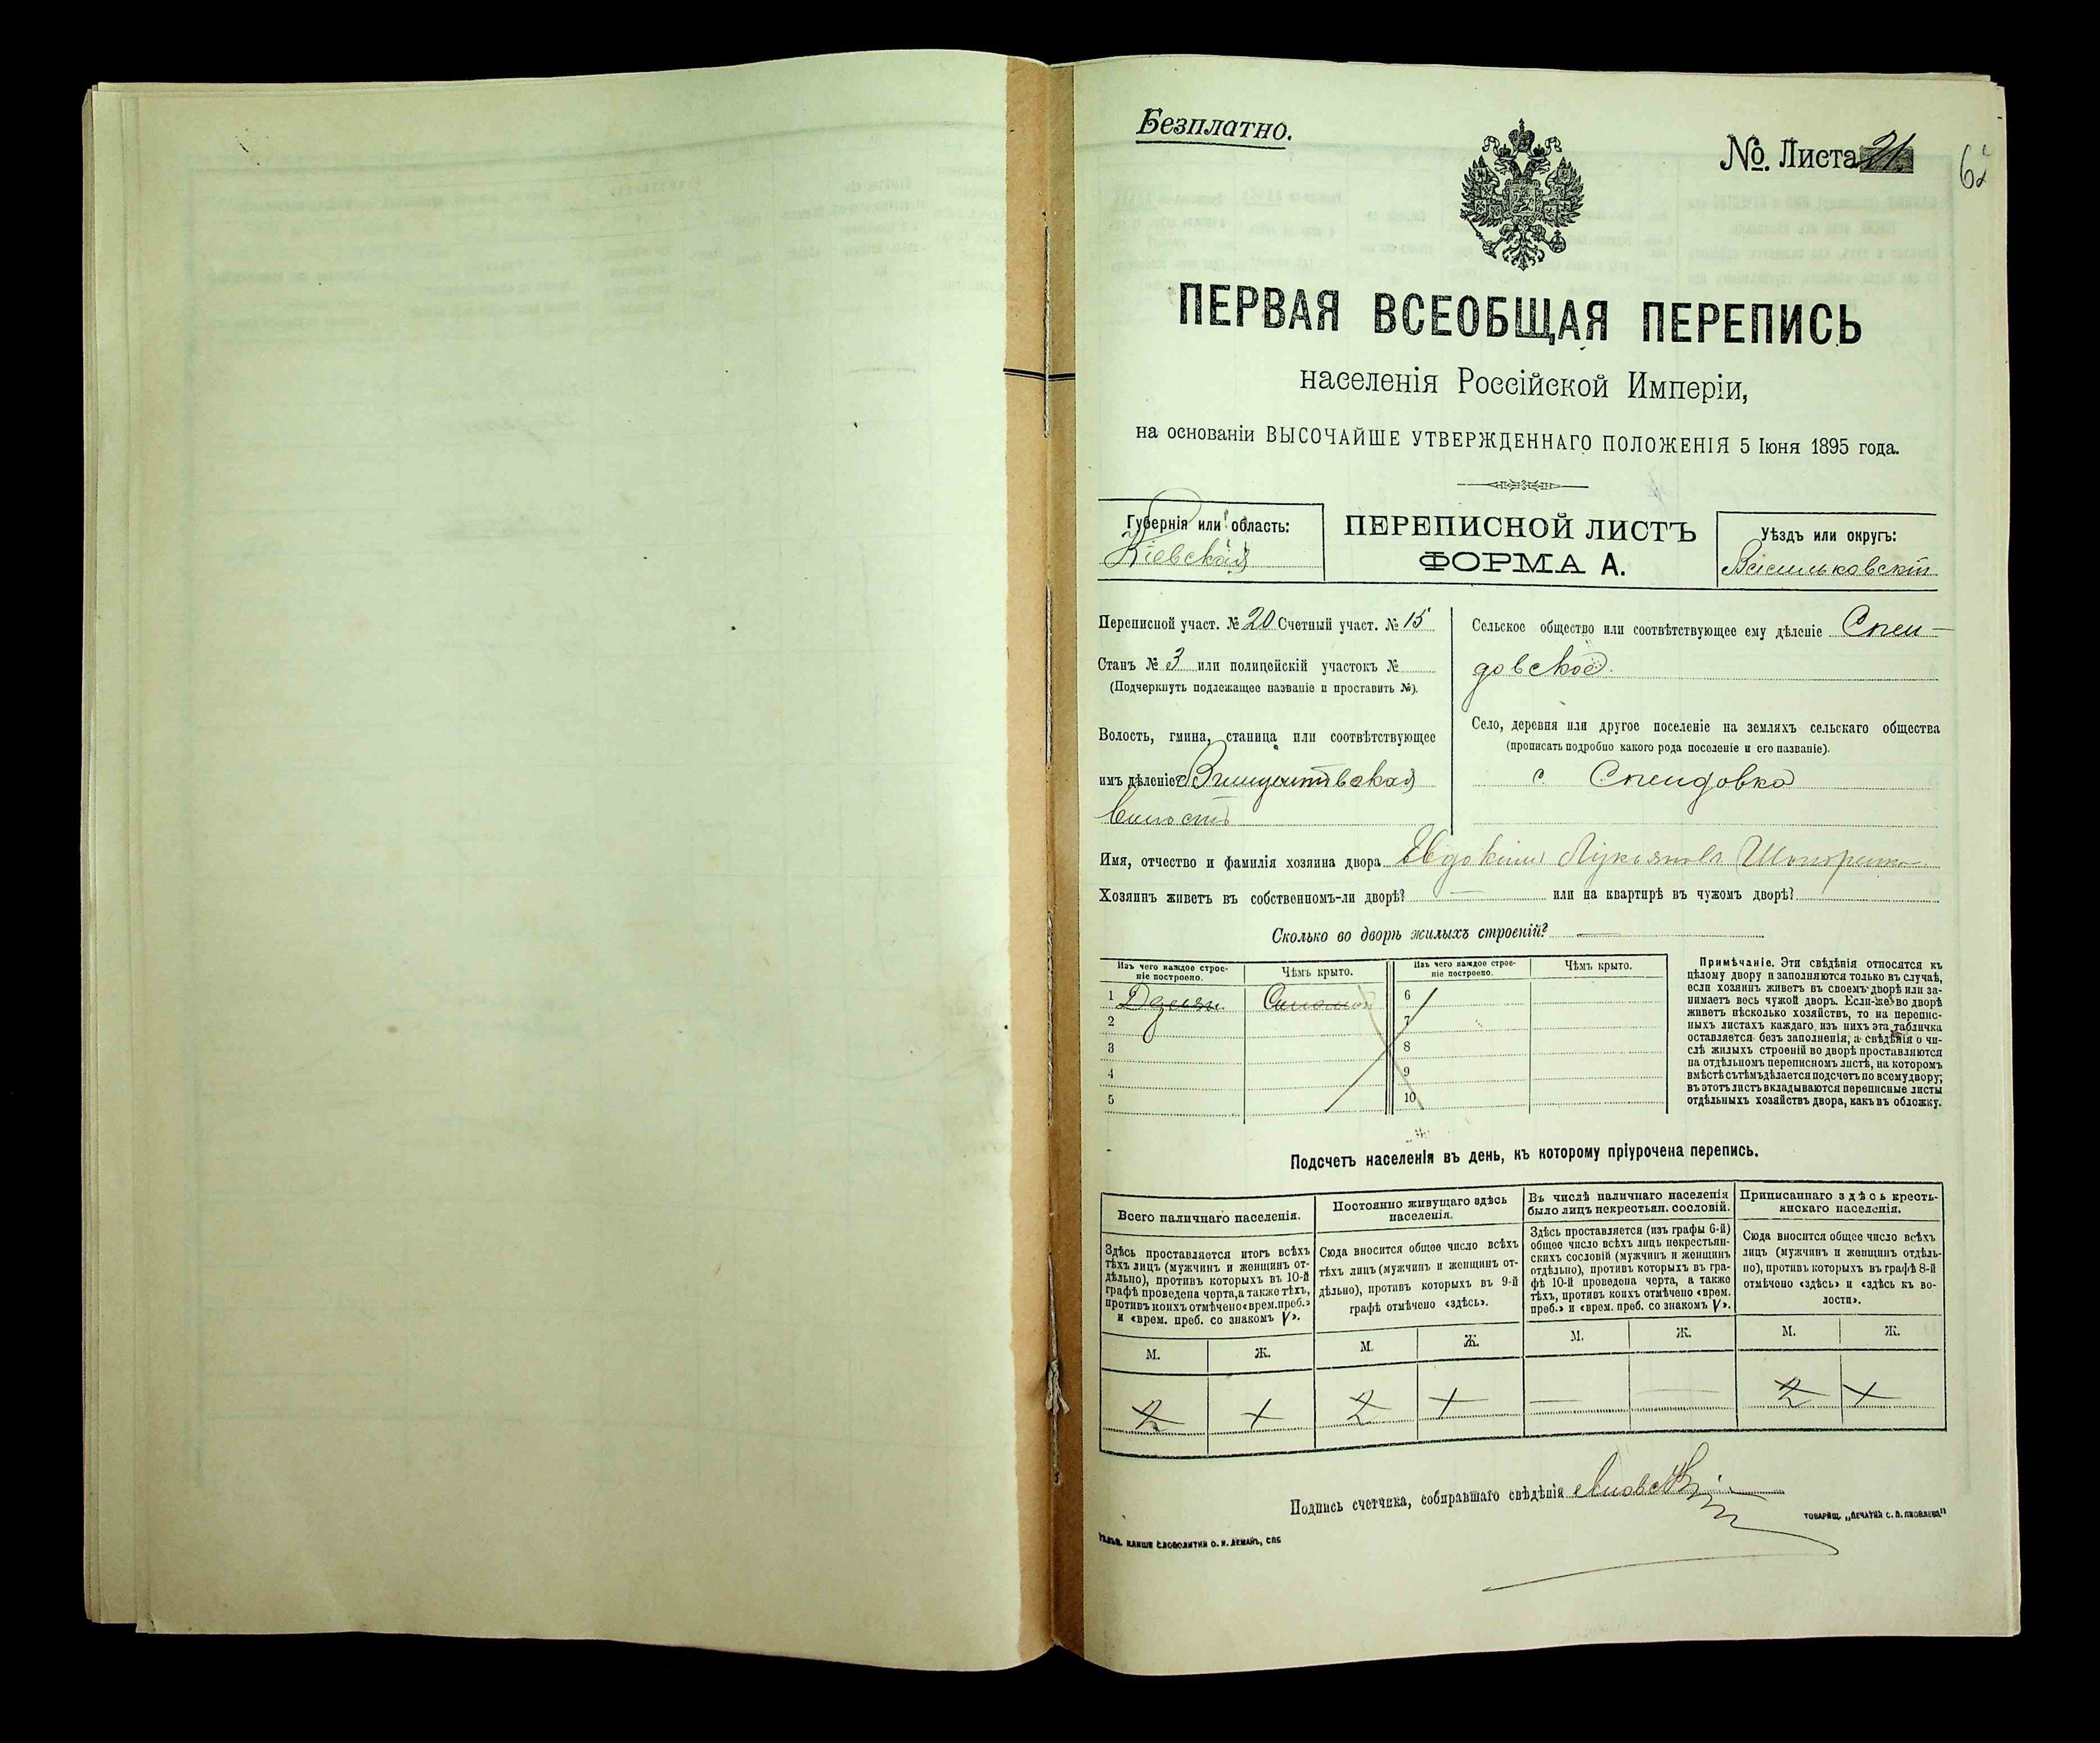 Безплатно.
№. Листа 21
62
ПЕРВАЯ ВСЕОБЩАЯ ПЕРЕПИСЬ
населенія Россійской Имперіи,
на основаніи ВЫСОЧАЙШЕ УТВЕРЖДЕННАГО ПОЛОЖЕНІЯ 5 Іюня 1895 года.
Губернія или область:
Кіевская
ПЕРЕПИСНОЙ ЛИСТЪ
ФОРМА А.
Уѣздъ или округъ:
Васильковскій
Переписной участ. № 20 Счетный участ. № 15
Станъ № 3 или полицейскій участокъ №
(Подчеркнуть подлежащее названіе и проставить №).
Волость, гмина, станица или соотвѣтствующее
имъ дѣленіе Винцентовская
волость
Сельское общество или соотвѣтствующее ему дѣленіе Спен-
довское.
Село, деревня или другое поселеніе на земляхъ сельскаго общества
(прописать подробно какого рода поселеніе и его названіе).
с. Спендовка
Имя, отчество и фамилія хозяина двора Евдоким Лукьянов
Хозяинъ живетъ въ собственномъ-ли дворѣ? — или на квартирѣ въ чужомъ дворѣ?
Сколько во дворѣ жилыхъ строеній? —
Изъ чего каждое строе-
ніе построено.
Чѣмъ крыто.
Изъ чего каждое строе-
ніе построено.
Чѣмъ крыто.
1
2
3
4
5
6
7
8
9
10
Примѣчаніе. Эти свѣдѣнія относятся къ
цѣлому двору и заполняются только въ случаѣ,
если хозяинъ живетъ въ своемъ дворѣ или за-
нимаетъ весь чужой дворъ. Если-же во дворѣ
живетъ нѣсколько хозяйствъ, то на перепис-
ныхъ листахъ каждаго изъ нихъ эта табличка
оставляется безъ заполненія, а свѣдѣнія о чи-
слѣ жилыхъ строеній во дворѣ проставляются
на отдѣльномъ переписномъ листѣ, на которомъ
вмѣстѣ съ тѣмъ дѣлается подсчетъ по всему двору;
въ этотъ листъ вкладываются переписные листы
отдѣльныхъ хозяйствъ двора, какъ въ обложку.
Подсчетъ населенія въ день, къ которому пріурочена перепись.
Всего наличнаго населенія.
Здѣсь проставляется итогъ всѣхъ
тѣхъ лицъ (мужчинъ и женщинъ от-
дѣльно), противъ которыхъ въ 10-й
графѣ проведена черта, а также тѣхъ,
противъ коихъ отмѣчено «врем. преб.»
и «врем. преб. со знакомъ V».
М. Ж.
2 1
Постоянно живущаго здѣсь
населенія.
Сюда вносится общее число всѣхъ
тѣхъ лицъ (мужчинъ и женщинъ от-
дѣльно), противъ которыхъ въ 9-й
графѣ отмѣчено «здѣсь».
М. Ж.
2 1
Въ числѣ наличнаго населенія
было лицъ некрестьян. сословій.
Здѣсь проставляется (изъ графы 6-й)
общее число всѣхъ лицъ некрестьян-
скихъ сословій (мужчинъ и женщинъ
отдѣльно), противъ которыхъ въ гра-
фѣ 10-й проведена черта, а также
тѣхъ, противъ коихъ отмѣчено «врем.
преб.» и «врем. преб. со знакомъ V».
М. Ж.
— —
Приписаннаго здѣсь кресть-
янскаго населенія.
Сюда вносится общее число всѣхъ
лицъ (мужчинъ и женщинъ отдѣль-
но), противъ которыхъ въ графѣ 8-й
отмѣчено «здѣсь» и «здѣсь къ во-
лости».
М. Ж.
2 1
Подпись счетчика, собиравшаго свѣдѣнія
ТОВАРИЩ. „ПЕЧАТНЯ С. П. ЯКОВЛЕВА"
КЛИШЕ СЛОВОЛИТНИ О. И. ЛЕМАНЪ, СПБ